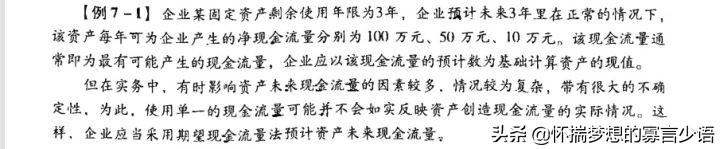 【例7-1】企业某固定资产剩余使用年限为3年，企业预计未来3年里在正常的情况下，
该资产每年可为企业产生的净现金流量分别为100万元、50万元、10万元。该现金流量通
常即为最有可能产生的现金流量，企业应以该现金流量的预计数为基础计算资产的现值。
但在实务中，有时影响资产未来现金流量的因素较多，情况较为复杂，带有很大的不确
定性，为此，使用单一的现金流量可能并不会如实反映资产创造现金流量的实际情况。这
样，企业应当采用期望现金流量法预计资产未来现金流量。
头条@怀揣梦想的寡言少语